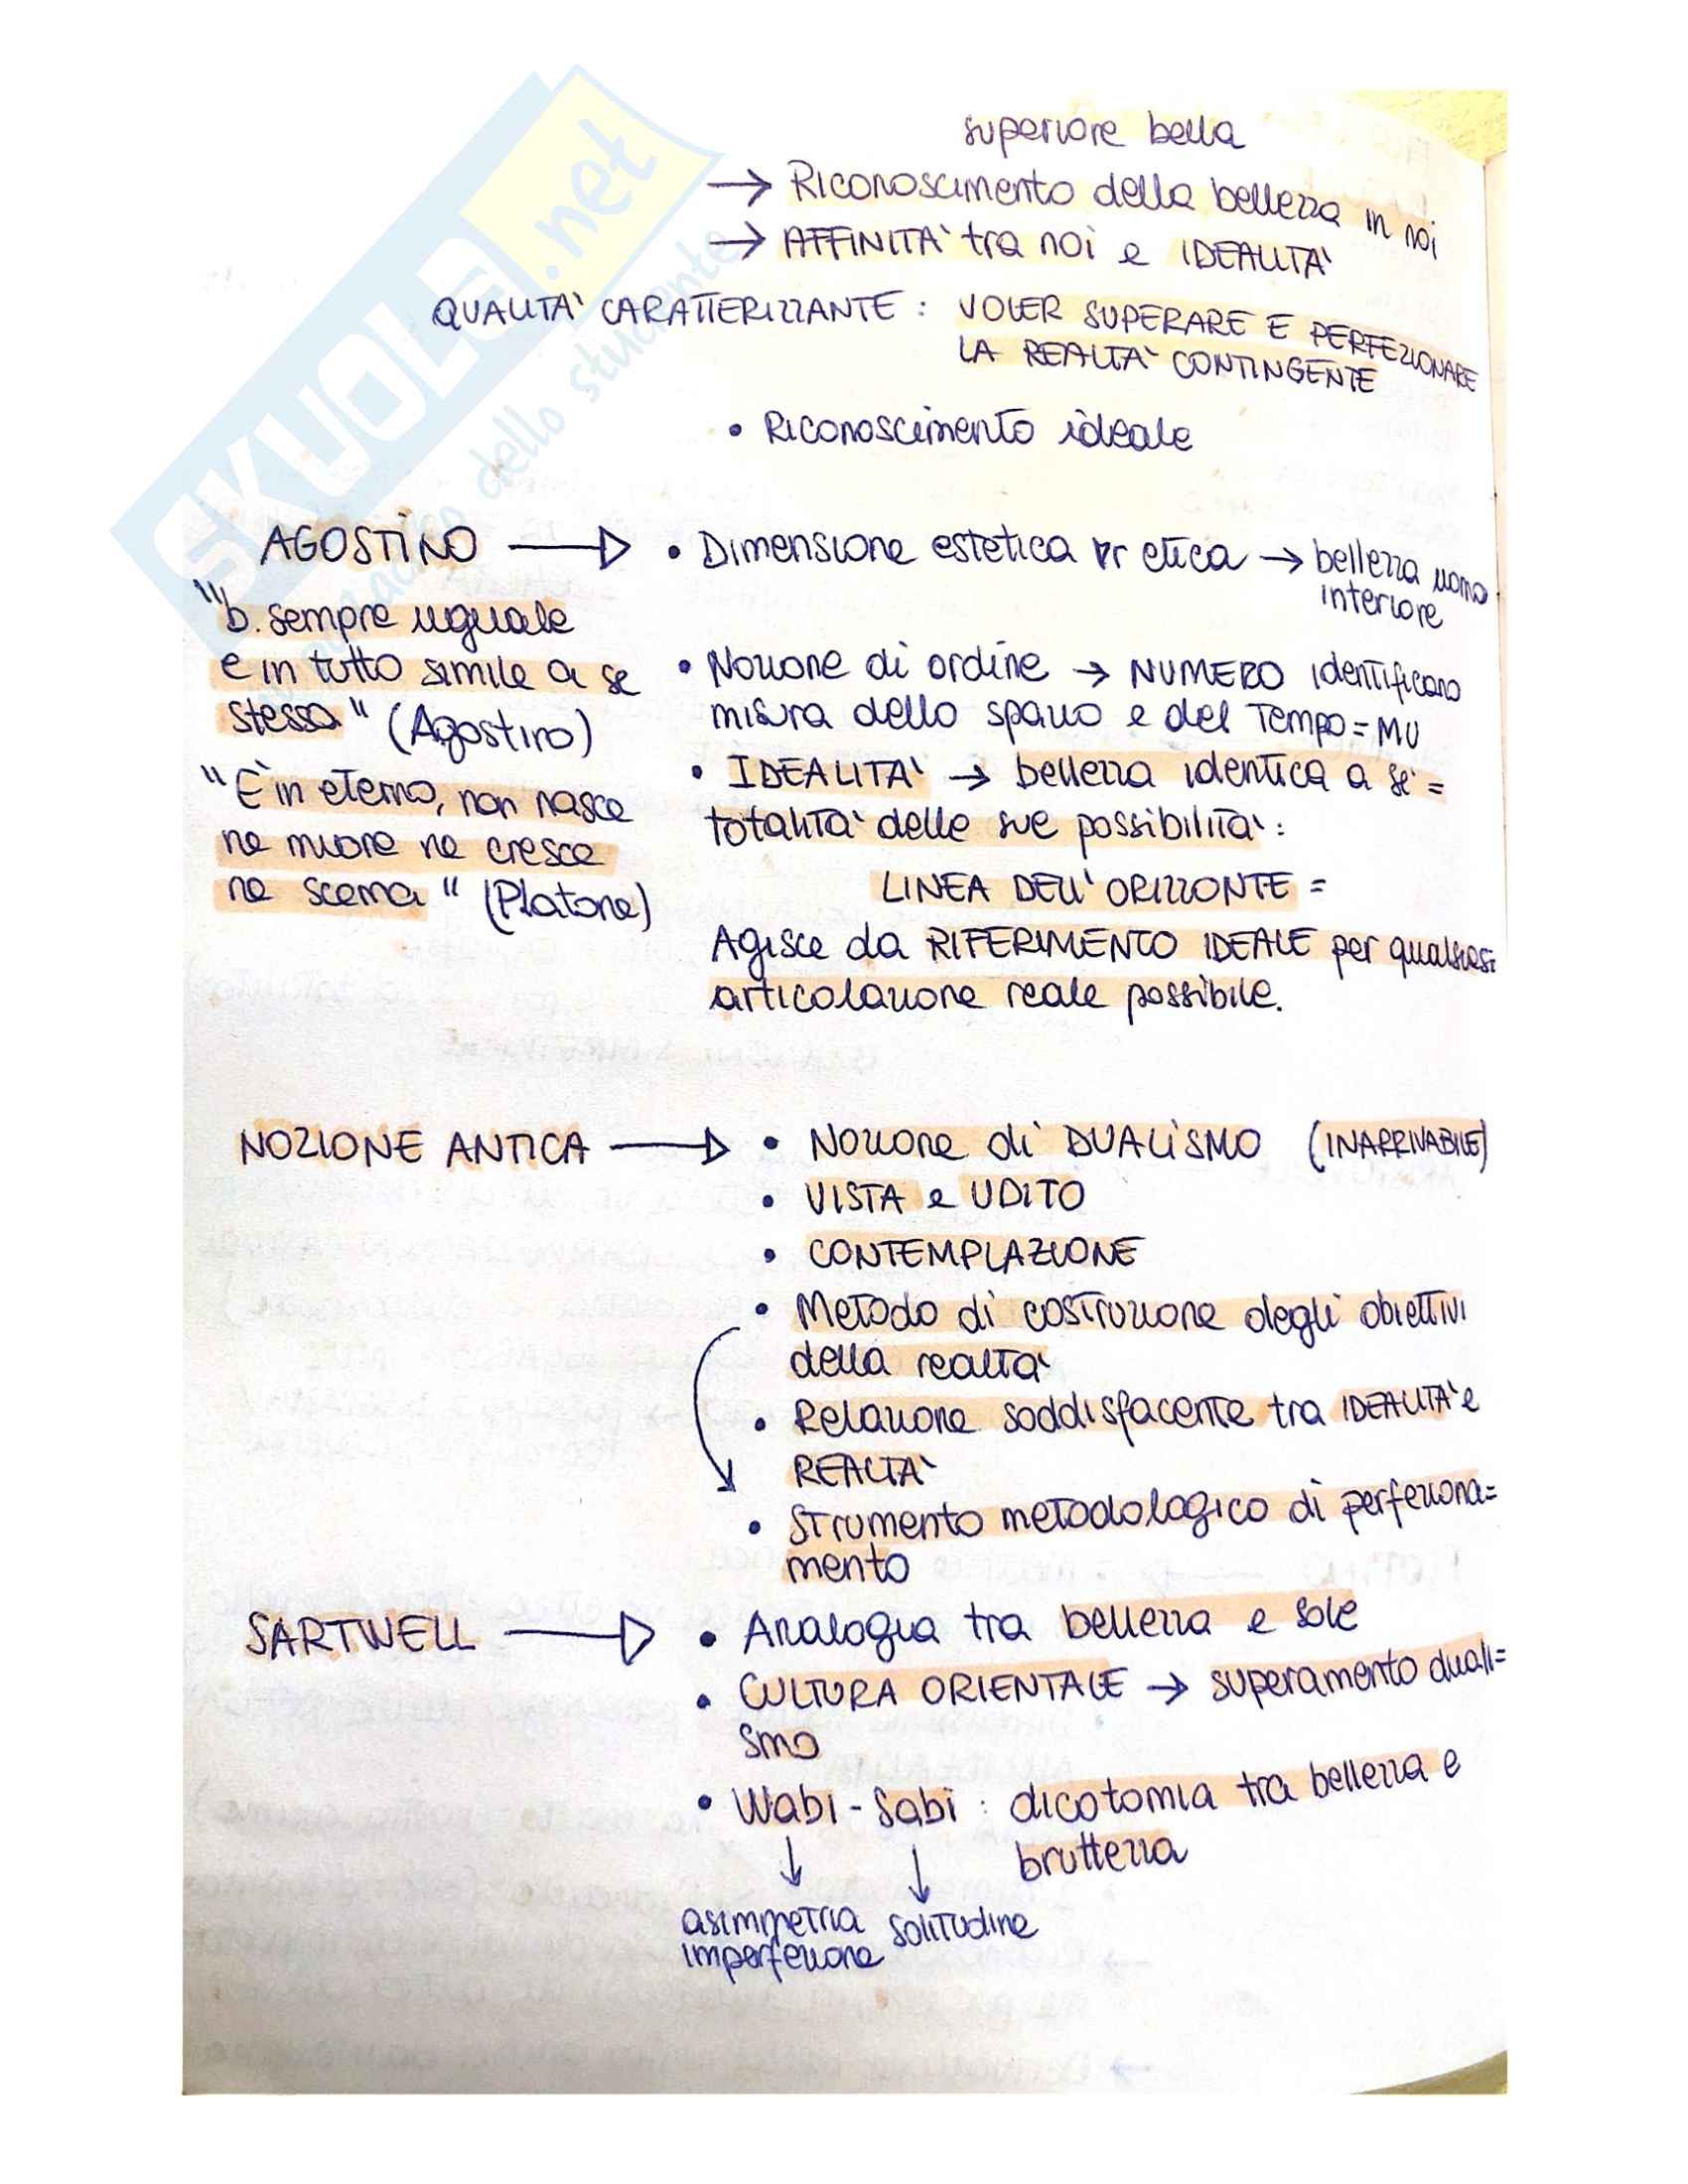 superiore bella
→ Riconoscimento della bellezza in noi
→ AFFINITA' tra noi e IDEALITA'
QUALITA' CARATTERIZZANTE : VOLER SUPERARE E PERFEZIONARE
LA REALTA' CONTINGENTE
• Riconoscimento ideale
AGOSTINO → • Dimensione estetica etica → bellezza uomo
interiore
"b. sempre uguale
e in tutto simile a se
stessa" (Agostino)
"E' in eterno, non nasce
ne muore ne cresce
ne scema" (Platone)
• Nozione di ordine → NUMERO identificano
misura dello spazio e del Tempo = MU
• IDEALITA' → bellezza identica a se' =
totalita' delle sue possibilita' :
LINEA DELL'ORIZZONTE =
Agisce da RIFERIMENTO IDEALE per qualsiasi
articolazione reale possibile.
NOZIONE ANTICA → • Nozione di DUALISMO (INARRIVABILE)
• VISTA e UDITO
• CONTEMPLAZIONE
• Metodo di costruzione degli obiettivi
della realta'
• Relazione soddisfacente tra IDEALITA' e
REALTA'
• Strumento metodologico di perfeziona=
mento
SARTWELL → • Analogia tra bellezza e sole
• CULTURA ORIENTALE → superamento duali=
smo
• Wabi - Sabi : dicotomia tra bellezza e
bruttezza
↓ ↓
asimmetria solitudine
imperfezione
SKUOLa.net
dello studente